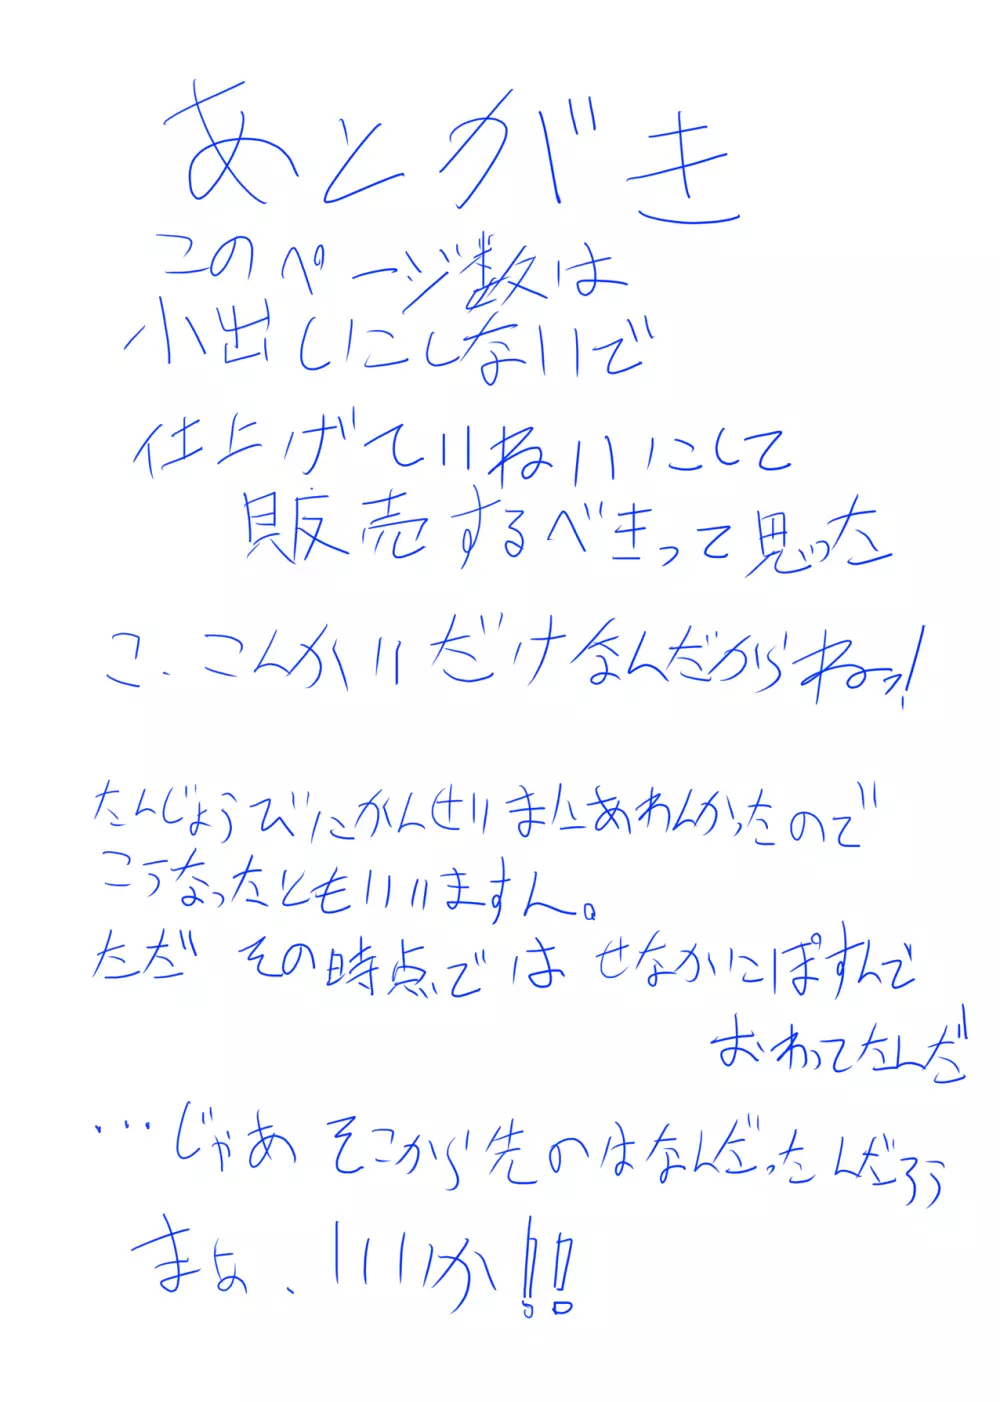 あとがき
このページ数は
小出しにしないで
仕上げていねいにして
販売するべきって思った
こ.こんかいだけなんだからねっ!
たんじょうびにがんせいまにあわんかったので
こうなったともいいますん。
ただ その時点では せなかにぽすんで
おわってたんだ
…じゃあ そこから先のはなんだったんだろう
まぁ、いいか!!